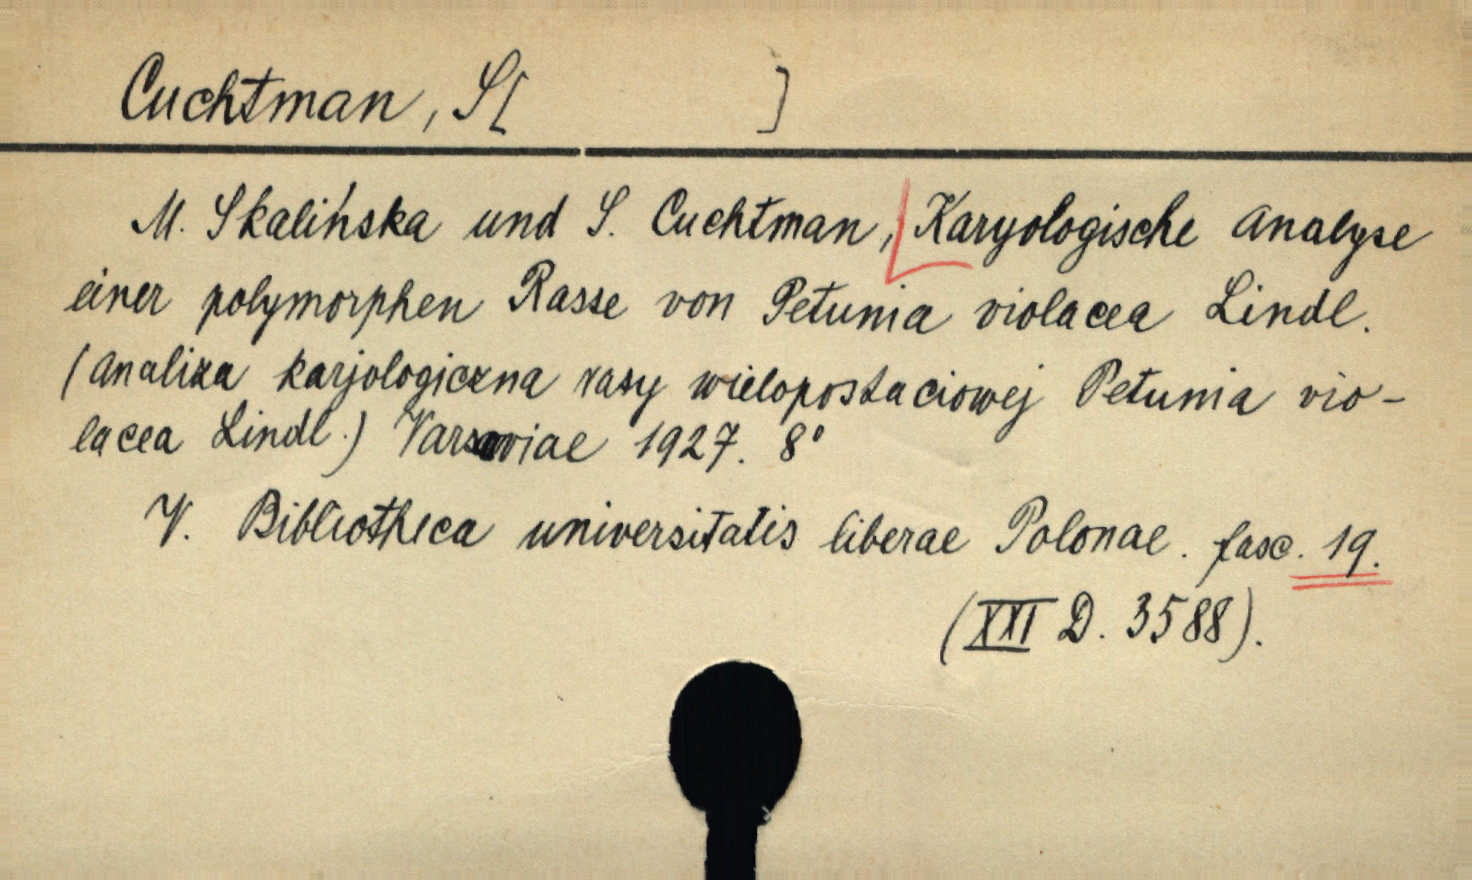 Cuchtman, S[ ]
M. Skalińska und S. Cuchtman, Karyologische Analyse
einer polymorphen Rasse von Petunia violacea Lindl.
(Analiza karjologiczna rasy wielopostaciowej Petunia vio-
lacea Lindl.) Varsoviae 1927. 8°
V. Bibliotheca universitatis liberae Polonae. fasc. 19.
(XXI D. 3588).